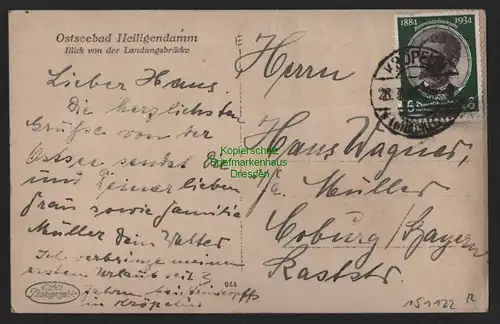 Ostseebad Heiligendamm
Blick von der Landungsbrücke
Lieber Hans.
Die herzlichsten
Grüße von der
Ostsee sendet Dir
und Deiner lieben
Frau sowie Familie
Müller Dein Walter
Ich verbringe meinen
ersten Urlaub seit 3
Jahren bei
in Kröpelin
Echte Photographie
944
1884 1934
6
KRÖPELIN
Herrn
Hans Wagner,
b/c Müller
Coburg/Bayern
Raststr.
151122 R
Kopierschutz
Briefmarkenhaus
Dresden